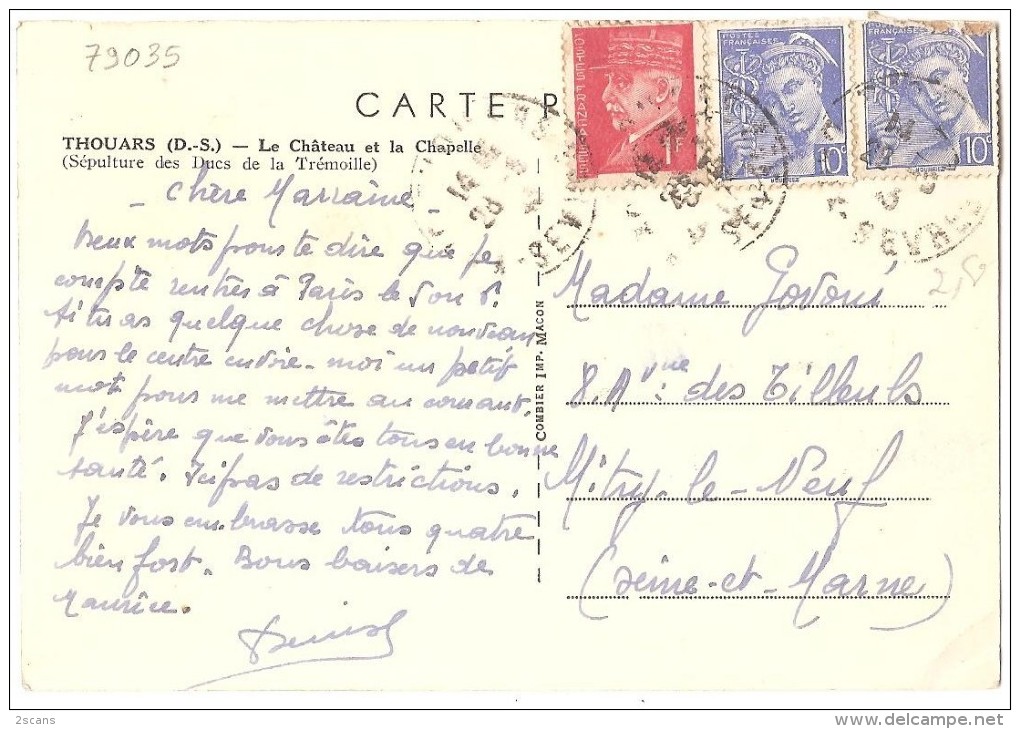 79035
CARTE P
THOUARS (D.-S.) — Le Château et la Chapelle
(Sépulture des Ducs de la Trémoille)
- Chère Marraine -
Deux mots pour te dire que je
compte rentrer à Paris le 5 ou 6.
Si tu as quelque chose de nouveau
pour le centre envoie-moi un petit
mot pour me mettre au courant.
J'espère que vous êtes tous en bonne
santé. Ici pas de restrictions.
Je vous embrasse tous quatre
bien fort. Bons baisers de
Maurice.
Denise
COMBIER IMP. MACON
POSTES FRANÇAISES
1F
POSTES
FRANÇAISES
10c
10c
SEVRES
Madame Govoni
8. Avnue des Tilleuls
Mitry-le-Neuf
(Seine-et-Marne)
2,50
2scans
www.delcampe.net